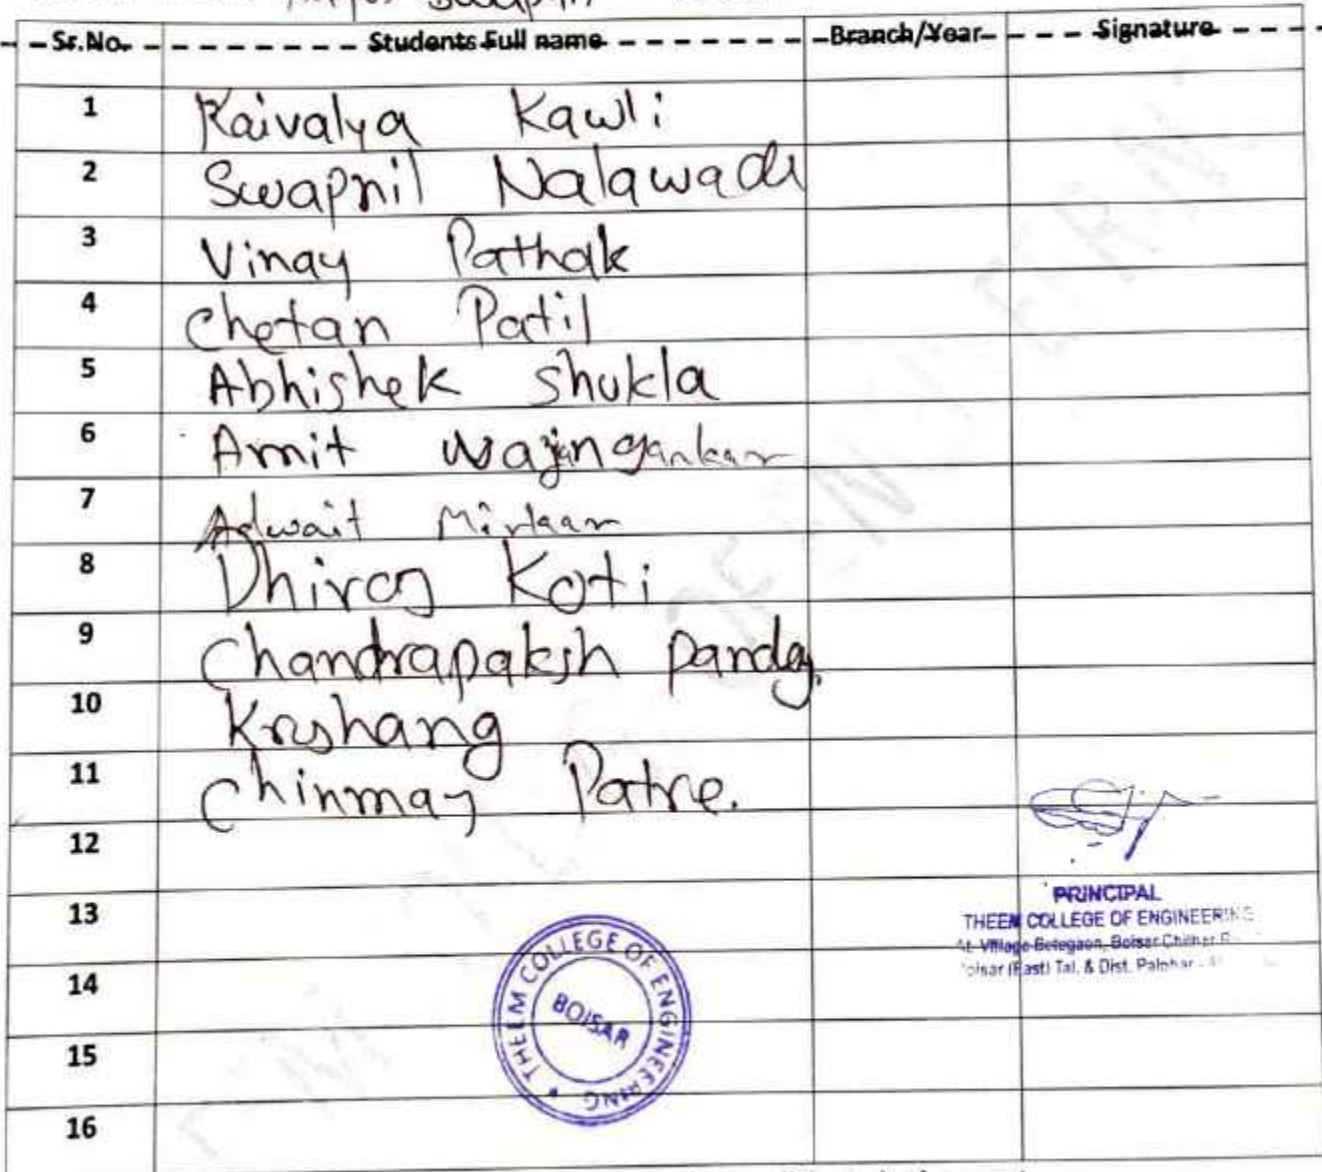 Swapnil
Sr.No. Students Full name Branch/Year Signature
1 Kaivalya Kawli
2 Swapnil Nalawade
3 Vinay Pathak
4 Chetan Patil
5 Abhishek Shukla
6 Amit Wajingankar
7 Adwait Mirkar
8 Dhiraj Koti
9 Chandrapaksh Pandey.
10 Krushang
11 Chinmay Patre.
12
PRINCIPAL
13
THEEM COLLEGE OF ENGINEERING
At. Village Betegaon, Boisar Chilhar
14
Boisar (East) Tal. & Dist. Palghar
THEEM COLLEGE OF ENGINEERING
BOISAR
15
16